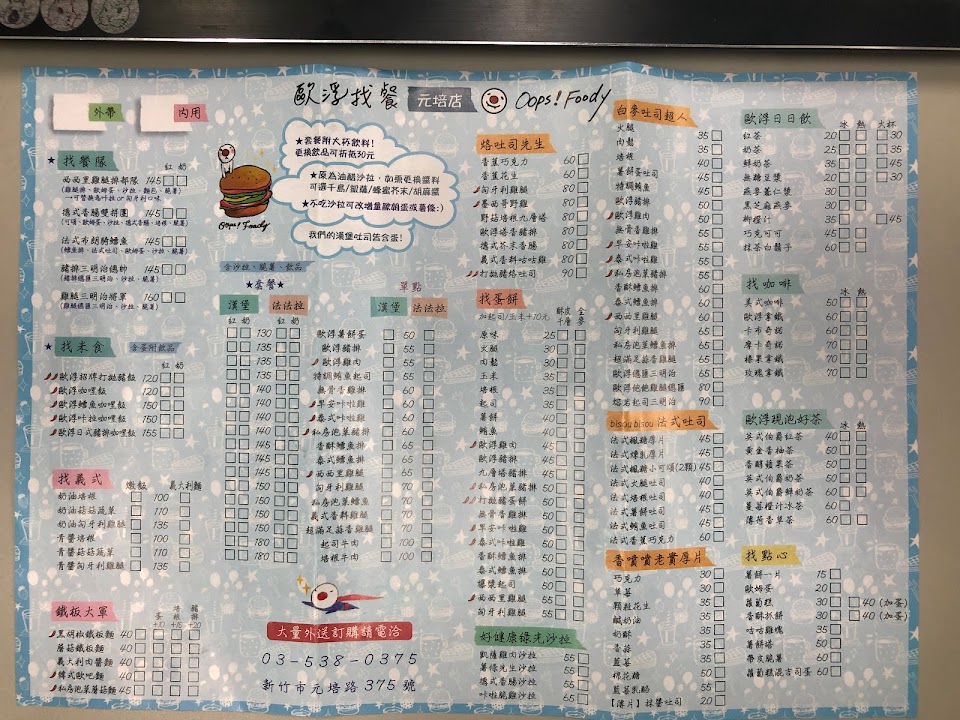 歐浮找餐 元培店 Oops! Foody
外帶 內用
★套餐附大杯飲料!
更換飲品可折抵30元
★原為油醋沙拉,如需更換醬料
可選千島/凱薩/蜂蜜芥末/胡麻醬
★不吃沙拉可改增量歐姆蛋或薯條:)
我們的漢堡吐司皆含蛋!
Oops! Foody
★找餐隊
紅 奶
西西里雞腿排部隊 145
(雞腿排、歐姆蛋、沙拉、麵包、脆薯)
德式香腸雙拼團 145
法式布朗騎鱈魚 145
(鱈魚排、法式吐司、歐姆蛋、沙拉、脆薯)
豬排三明治總帥 145
(豬排總匯三明治、沙拉、脆薯)
雞腿三明治將軍 160
(雞腿總匯三明治、沙拉、脆薯)
★找米食 含蛋附飲品
紅 奶
歐浮招牌打拋豬飯 120
歐浮咖哩飯 120
歐浮鱈魚咖哩飯 150
歐浮咔拉咖哩飯 150
歐浮日式豬排咖哩飯 155
找義式 燉飯 義大利麵
奶油培根 100
奶油菇菇蔬菜 110
奶油匈牙利雞腿 135
青醬培根 100
青醬菇菇蔬菜 110
青醬匈牙利雞腿 135
鐵板大軍
蛋 +10 培根 +15 豬排 +20
黑胡椒鐵板麵 40
蘑菇鐵板麵 40
義大利肉醬麵 40
韓式歐吧麵 40
私房泡菜蘑菇麵 45
含沙拉、脆薯、飲品
★套餐★ 單點
漢堡 法法拉 漢堡 法法拉
紅 奶 紅 奶
130 歐浮薯餅蛋 50
135 歐浮豬排 55
135 歐浮雞肉 55
135 特調鱈魚起司 55
140 無骨香雞排 60
140 早安咔啦雞 60
140 泰式咔啦雞 60
145 私房泡菜豬排 60
145 香酥鱈魚排 65
145 泰式鱈魚排 65
150 西西里雞腿 65
150 匈牙利雞腿 70
150 私房泡菜鱈魚 70
150 義式香料雞腿 70
150 超滿足蒜香雞腿 70
180 起司牛肉 100
180 培根牛肉 100
大量外送訂購請電洽
03-538-0375
新竹市元培路375號
烙吐司先生
香蕉巧克力 60
匈牙利雞腿 80
墨西哥野雞 80
野菇培根九層塔 80
歐浮塔香豬排 80
德式芥末香腸 80
義式香料咕咕雞 80
打拋豬烙吐司 90
找蛋餅
加起司/玉米+10元 酥皮千層 全麥
原味 25
火腿 30
肉鬆 30
玉米 35
培根 35
起司 35
薯餅 40
鮪魚 40
歐浮雞肉 45
歐浮豬排 45
九層塔豬排 50
私房泡菜豬排 50
打拋豬蛋餅 50
無骨香雞排 50
早安咔啦雞 50
泰式咔啦雞 50
香酥鱈魚排 50
泰式鱈魚排 50
爆漿起司 50
西西里雞腿 55
匈牙利雞腿 55
好健康綠光沙拉
凱薩雞肉沙拉 55
薯條先生沙拉 55
德式香腸沙拉 55
咔啦脆雞沙拉 55
白麥吐司超人
火腿 35
肉鬆 35
培根 40
薯餅蛋吐司
特調鮪魚 45
歐浮豬排 50
歐浮雞肉 50
無骨香雞排
早安咔啦雞
泰式咔啦雞
私房泡菜豬排
香酥鱈魚排 60
泰式鱈魚排 60
西西里雞腿 60
匈牙利雞腿 65
私房泡菜鱈魚 65
義式香料雞腿 65
超滿足蒜香雞腿 65
歐浮總匯三明治 65
歐浮咆咆雞腿總匯 80
熔岩起司三明治 90
bisou bisou 法式吐司
法式楓糖厚片 45
法式煉乳厚片 45
法式楓糖小可頌(2顆) 45
法式火腿吐司 40
法式培根吐司 40
法式薯餅吐司 45
法式鮪魚吐司 45
法式香蕉巧克力 60
香噴噴老實厚片
巧克力 30
草莓 30
顆粒花生 35
鹹奶油 35
奶酥 35
香蒜 35
藍莓 35
棉花糖 50
藍莓乳酪 55
【薄片】抹醬吐司 20
歐浮日日飲 冰 熱 大杯
紅茶 20 30
奶茶 20 30
鮮奶茶 35 45
無糖豆漿 20 30
燕麥薏仁漿 30
黑芝麻燕麥 30
柳橙汁 35 45
巧克可可 45
抹茶白鬍子 60
找咖啡 冰 熱
美式咖啡 50
歐浮拿鐵 60
卡布奇諾 60
摩卡奇諾 70
榛果拿鐵 70
玫瑰拿鐵 70
歐浮現泡好茶 冰 熱
英式伯爵紅茶 40
黃金香柚茶 50
香醇蘋果茶 50
英式奶香茶 50
英式伯爵鮮奶茶 60
蔓莓橙汁冰茶 60
薄荷香草茶 60
找點心
薯餅一片 15
歐姆蛋 20
蘿蔔糕 30 40(加蛋)
香酥抓餅 30 40(加蛋)
咕咕雞塊 30
薯餅塔 50
帶皮脆薯 60
蘿蔔糕混吉司蛋 60